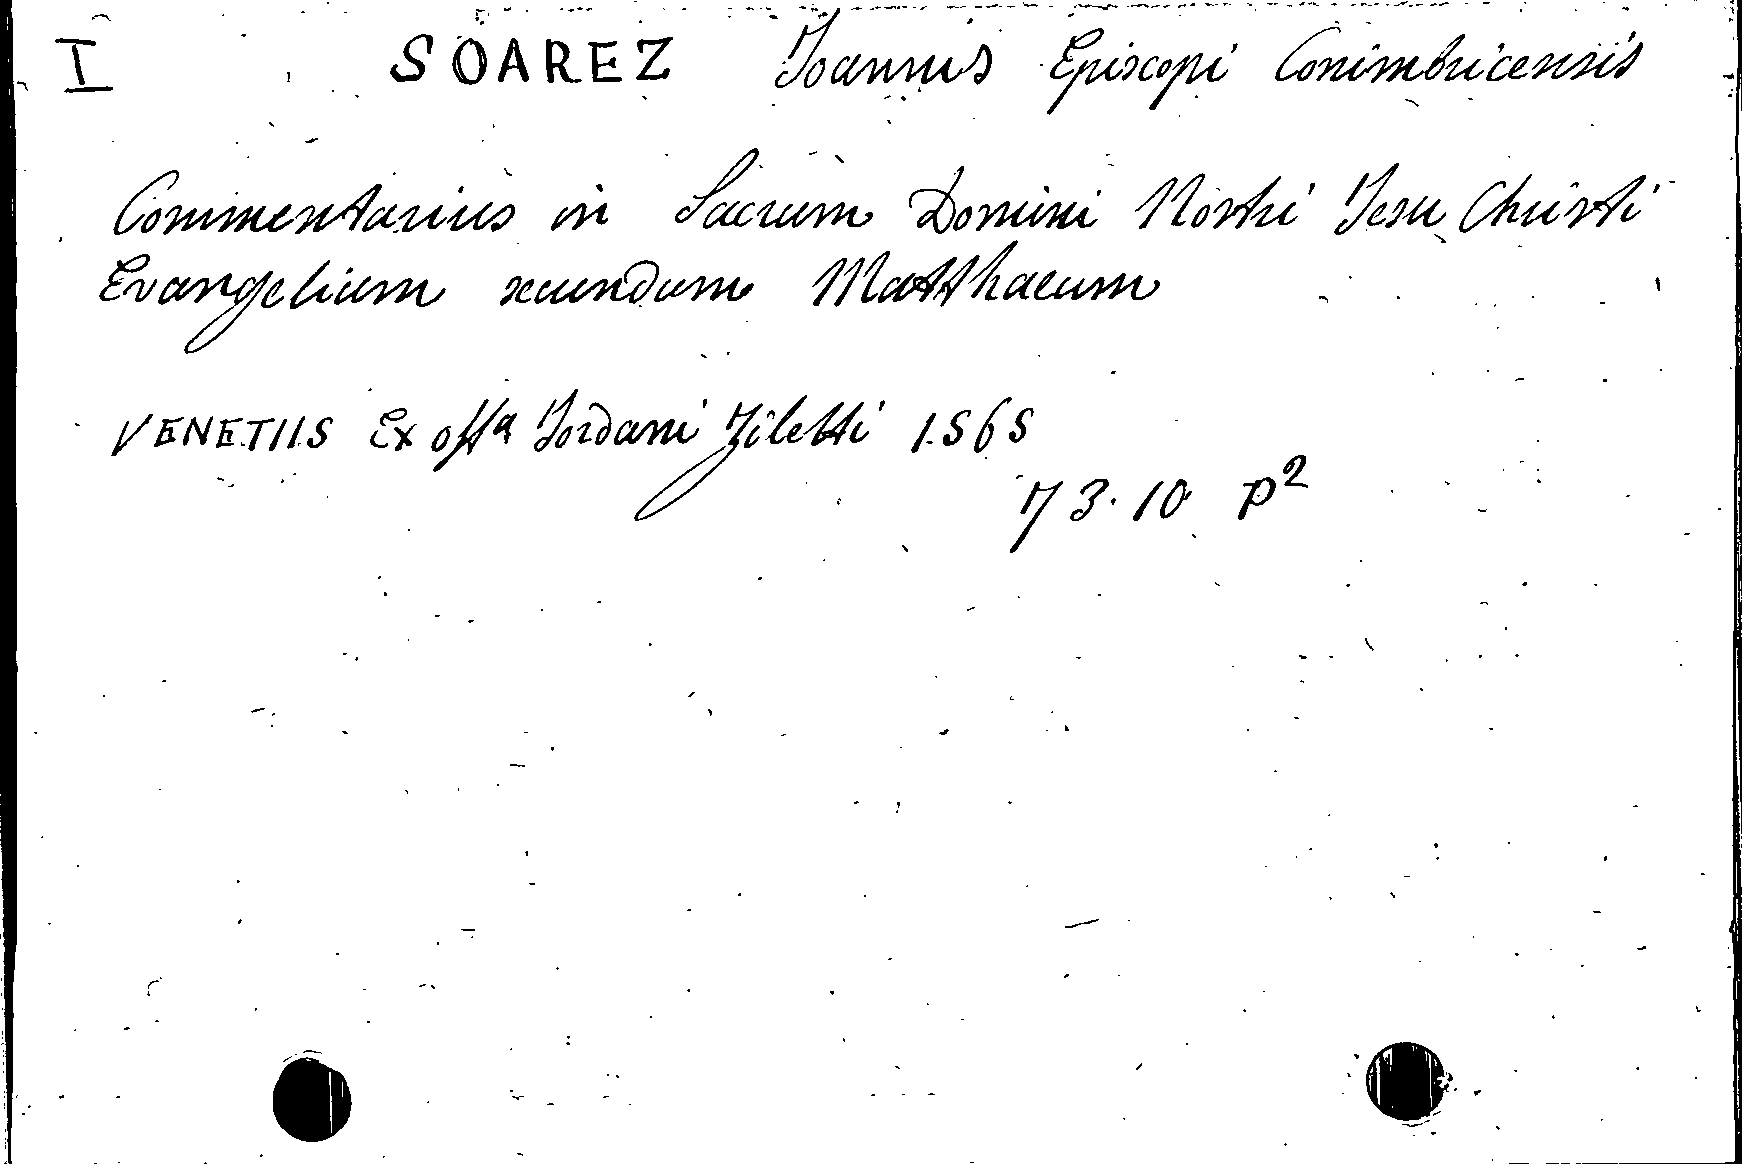 I SOAREZ Joannis Episcopi Conimbricensis
Commentarius in Sacrum Domini Nostri Jesu Christi
Evangelium secundum Matthaeum
VENETIIS Ex offª Jordani Ziletti 1565
73.10 p²